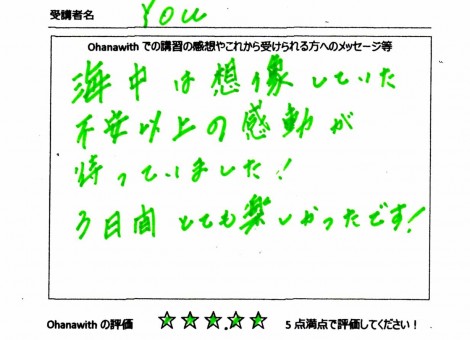 受講者名 You
Ohanawith での講習の感想やこれから受けられる方へのメッセージ等
海中は想像していた
不安以上の感動が
待っていました！
3日間とても楽しかったです！
Ohanawith の評価 ☆☆☆.☆☆ 5点満点で評価してください！